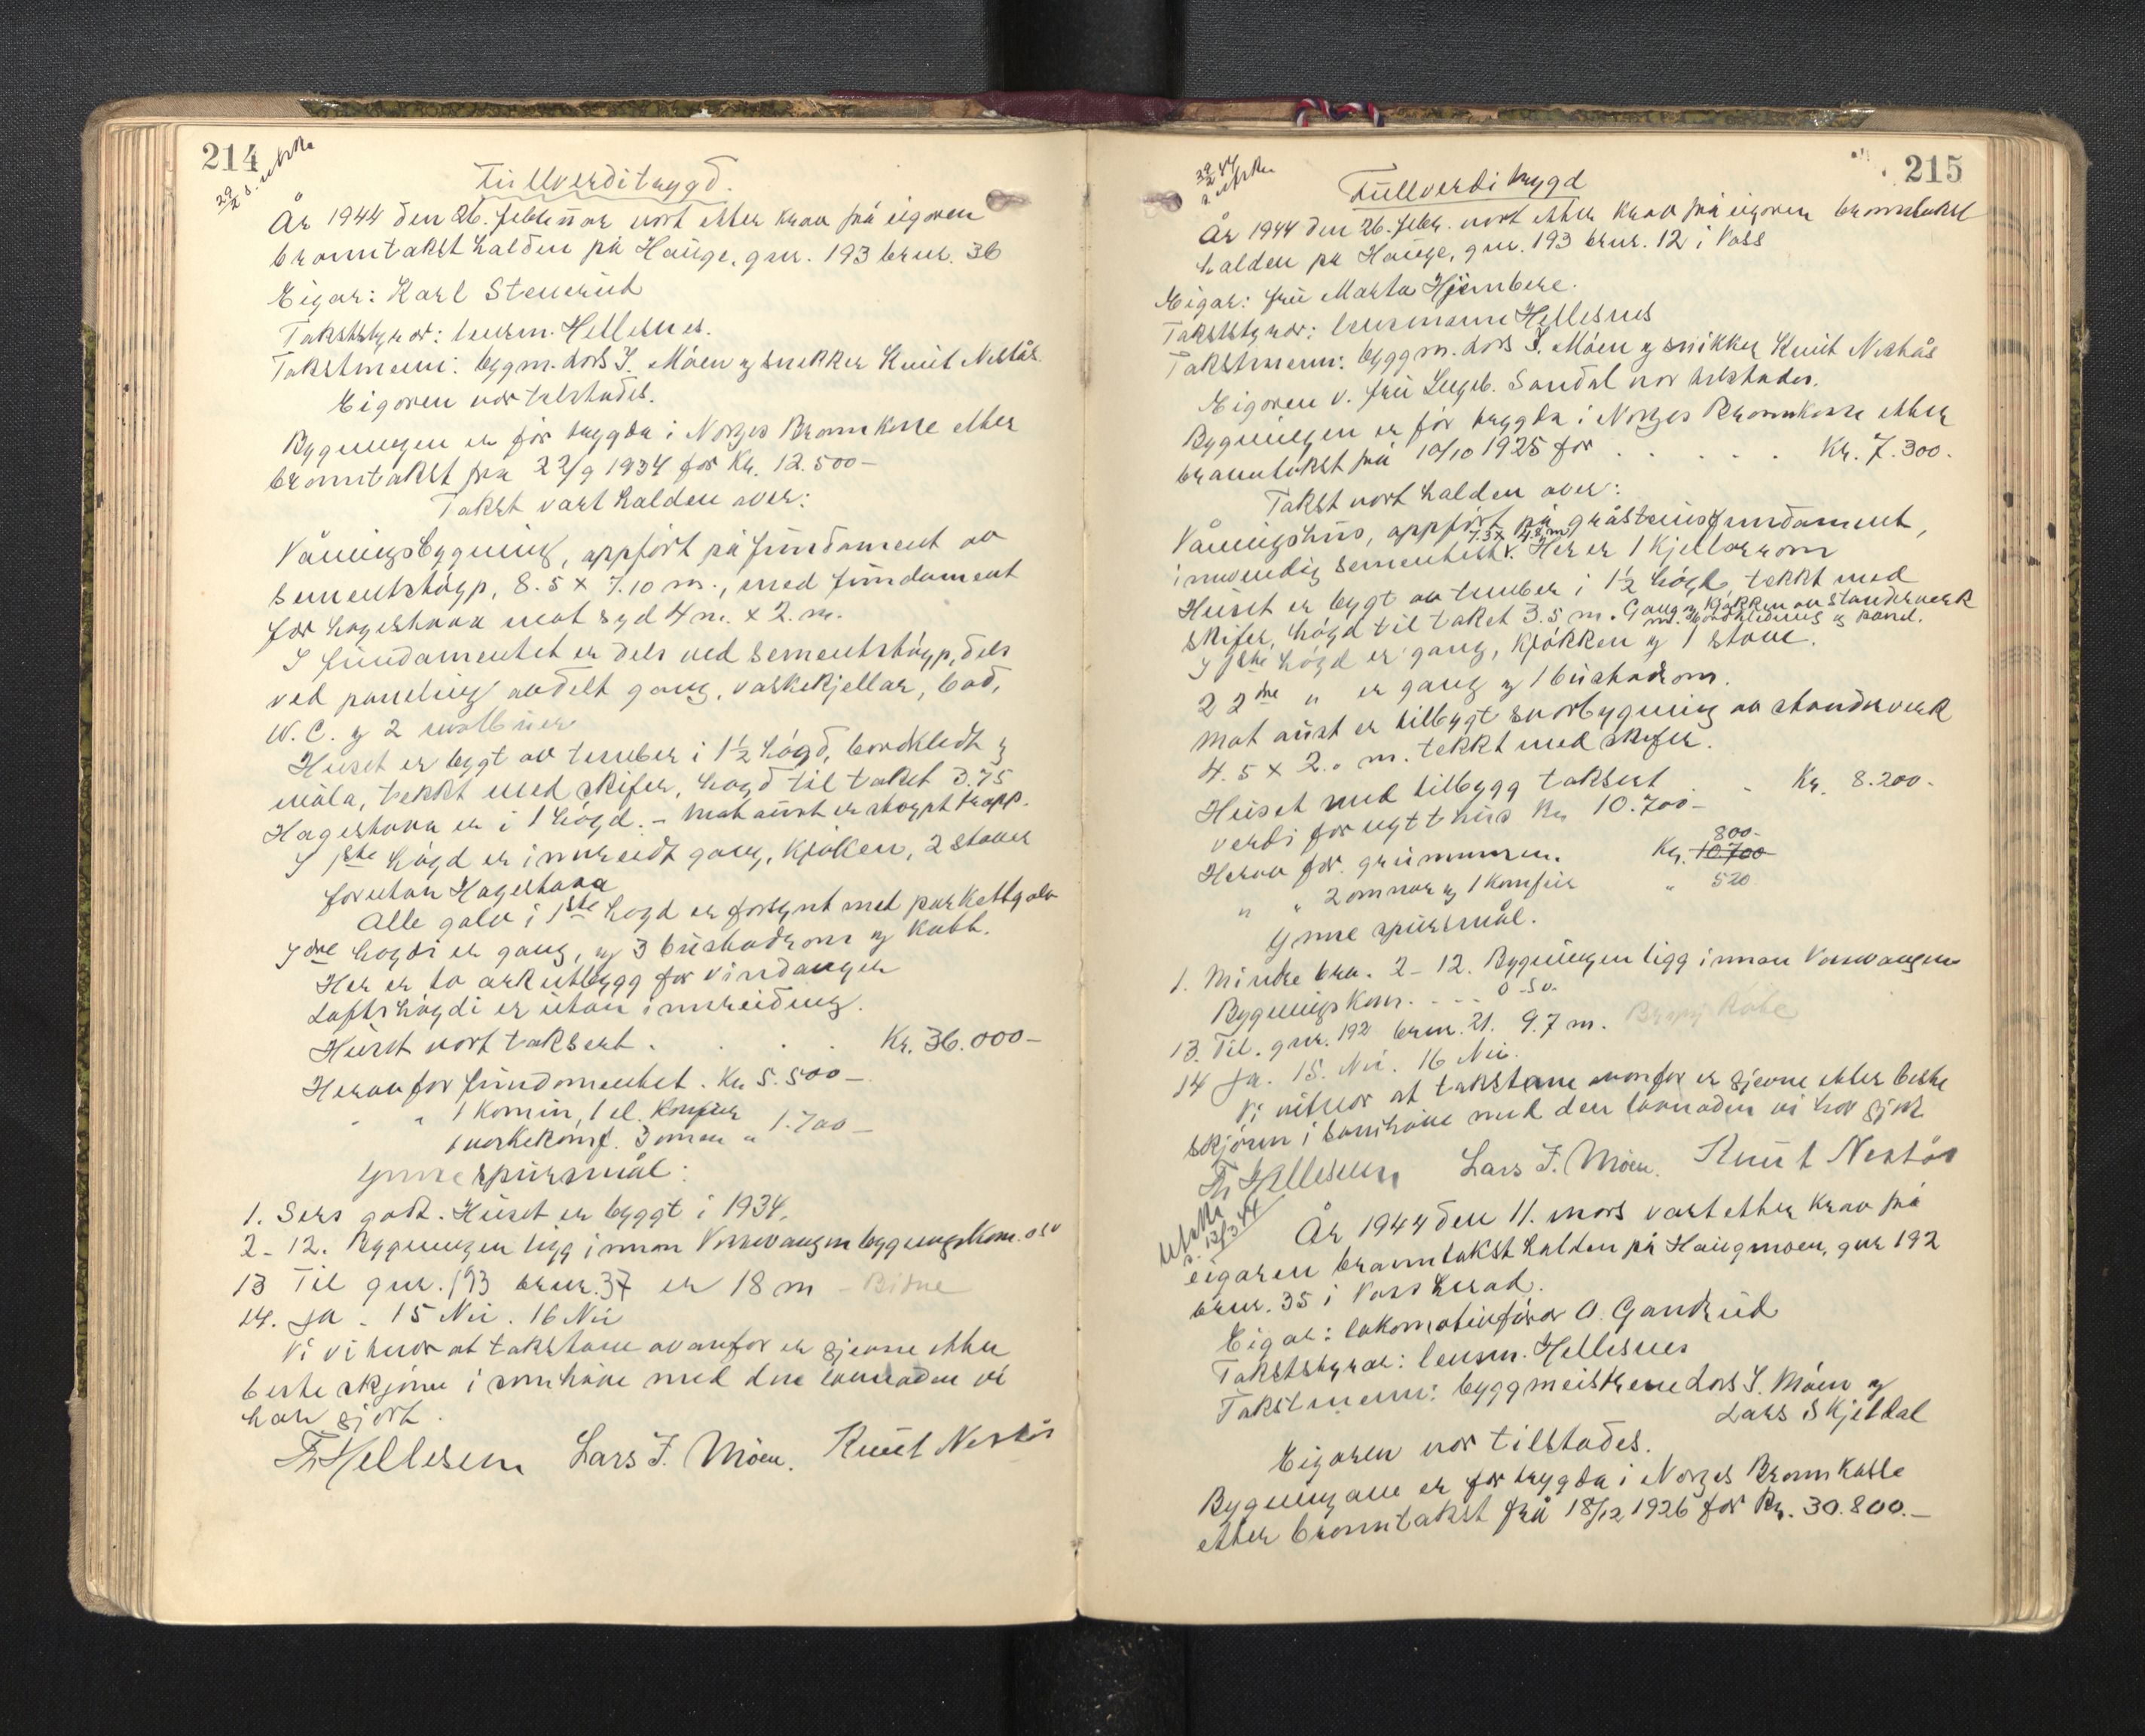 214
29/2 s. utskr.
Fullverditrygd.
År 1944 den 26. februar vart etter krav frå eigaren
branntakst halden på Hauge, gnr. 193 brnr. 36
Eigar: Karl Stenerud
Takststyrar: lensm. Hellesnes.
Takstmenn: byggm. Lars J. Møen og snekker Knut Nestås.
Eigaren var tilstades.
Bygningen er før trygda i Norges Brannkasse etter
branntakst fra 22/9 1934 for Kr. 12.500-
Takst vart halden over:
Våningsbygning, oppført på fundament av
sementstøyp, 8.5 x 7.10 m., med fundament
for hagestova mot syd 4 m. x 2. m.
I fundamentet er dels ved sementstøyp, dels
ved paneling avdelt gang, vaskekjellar, bad,
W.C. og 2 matbuer
Huset er bygt av tømber i 1½ høgd, bordkledt og
måla, tekkt med skifer, høgd til taket 3.75
Hagestova er i 1 høgd. - Mot aust er støypt trapp.
I 1ste høgd er innreidt gang, kjøkken, 2 stover
forutan Hagestova
Alle golv i 1ste høgd er forsynt med parkettgolv
I dre høgdi er gang, og 3 bushadrom og kott.
Her er to arkutbygg for vindauger
Loftshøgdi er utan innreiding.
Huset vart taksert . . . . Kr. 36.000-
Herav for fundamentet. Kr. 5.500-
" " 1 Komin, 1 el. Komfur
1 vaskekomf. 3 omnar " 1.700-
Ymse spursmål:
1. Sers godt. Huset er byggt i 1934.
2-12. Bygningen ligg innan Vossevangen bygningskom. osv
13 Til gnr. 193 brnr. 37 er 18 m - Bidne
14. Ja. 15 Nei. 16 Nei
Vi vitnar at takstane ovanfor er gjevne etter
beste skjønn i samhøve med den lovnaden vi
hav gjort.
Th Hellesnes Lars J. Møen. Knut Nestås
215
29/2 44
s. utskr.
Fullverditrygd
År 1944 den 26. febr. vart etter krav frå eigaren branntakst
halden på Hauge, gnr. 193 brnr. 12 i Voss
Eigar: fru Marta Hjømbere.
Takststyrar: lensmann Hellesnes
Takstmenn: byggm. Lars J. Møen og snikker Knut Nestås
Eigaren v. fru Ingeb. Sandal var tilstades.
Bygningen er før trygda i Norges Brannkasse etter
branntakst frå 10/10 1925 for . . . . . Kr. 7.300.
Takst vart halden over:
Våningshus, oppført på gråsteinsfundament,
7.3 x 4.8 m
innvendig sementert. Her er 1 kjellarrom
Huset er bygt av tømber i 1½ høgd, tekkt med
skifer, høgd til taket 3.5 m. Gang og kjøkken av standverk
m. bordkledning og panel.
I 1ste høgd er gang, kjøkken og 1 stove.
2 dre " er gang og 1 bushadrom.
Mot aust er tilbygt snorbygning av standverk
4.5 x 2.0 m. tekkt med skifer.
Huset med tilbygg taksert . - Kr. 8.200-
verdi for nytt hus Kr. 10.700-
Herav for grunnmuren. Kr. 800-
10700-
" " 2 omnar og 1 komfur " 520
Ymse spursmål.
1. Mindre bra. 2-12. Bygningen ligg innan Vossevangen
Bygningskom. - - - o.s.v.
13. Til. gnr. 192 brnr. 21. 9.7 m.
14 Ja. 15. Nei. 16 Nei.
Vi vitnar at takstane ovanfor er gjevne etter beste
skjønn i samhøve med den lovnaden vi hav gjort
Th Hellesnes Lars J. Møen. Knut Nestås
Utskr.
s. 13/3 44
År 1944 den 11. mars vart etter krav frå
eigaren branntakst halden på Haugmoen, gnr 192
brnr. 35 i Voss herad.
Eigar: lokomotivførar O. Gandrud
Takststyrar: lensm. Hellesnes
Takstmenn: byggmeistrene Lars J. Møen og
Lars Skjeldal
Eigaren var tilstades.
Bygningane er før trygda i Norges Brannkasse
etter branntakst frå 18/12 1926 for Kr. 30.800.-